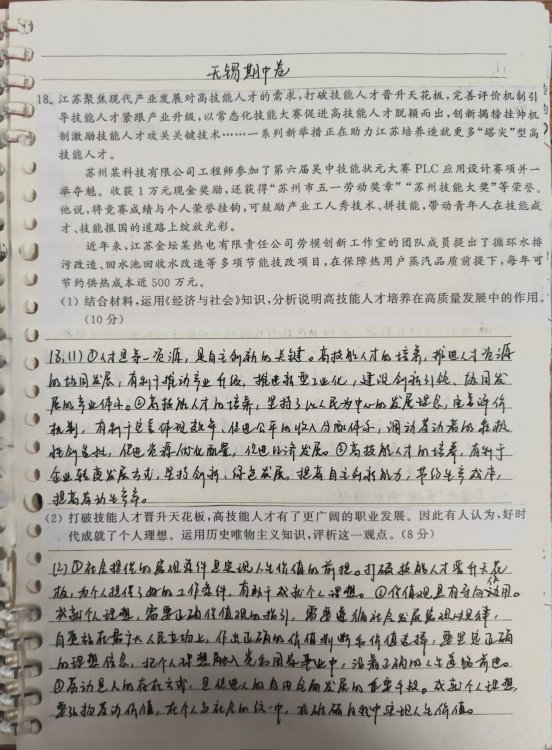 无锡期中卷
18. 江苏聚焦现代产业发展对高技能人才的需求,打破技能人才晋升天花板,完善评价机制引
导技能人才紧跟产业升级,以常态化技能大赛促进高技能人才脱颖而出,创新揭榜挂帅机
制激励技能人才攻关关键技术……一系列新举措正在助力江苏培养造就更多“塔尖”型高
技能人才。
苏州某科技有限公司工程师参加了第六届吴中技能状元大赛 PLC 应用设计赛项并一
举夺魁。收获 1 万元现金奖励,还获得“苏州市五一劳动奖章”“苏州技能大奖”等荣誉。
他说,将竞赛成绩与个人荣誉挂钩,可鼓励产业工人秀技术、拼技能,带动青年人在技能成
才、技能报国的道路上绽放光彩。
近年来,江苏金坛某热电有限责任公司劳模创新工作室的团队成员提出了循环水排
污改造、回水池回收水改造等多项节能技改项目,在保障热用户蒸汽品质前提下,每年可
节约供热成本近 500 万元。
(1) 结合材料,运用《经济与社会》知识,分析说明高技能人才培养在高质量发展中的作用。
(10 分)
18.(1) ①人才是第一资源,是自主创新的关键。高技能人才的培养,推进人才资源
的协同发展,有利于推动产业升级,推进新型工业化,建设创新引领、协同发
展的产业体系。②高技能人才的培养,坚持了以人民为中心的发展理念,完善评价
机制,有利于完善体现效率、促进公平的收入分配体系,调动劳动者的积极
性创造性,促进资源优化配置,促进经济发展。③高技能人才的培养,有利于
企业转变发展方式,坚持创新、绿色发展,提高自主创新能力,节约生产成本,
提高劳动生产率。
(2) 打破技能人才晋升天花板,高技能人才有了更广阔的职业发展。因此有人认为,好时
代成就了个人理想。运用历史唯物主义知识,评析这一观点。(8 分)
(2) ①社会提供的客观条件是实现人生价值的前提。打破技能人才晋升天花
板,为个人提供了好的工作条件,有助于成就个人理想。②价值观具有导向作用。
成就个人理想,需要正确价值观的指引,需要遵循社会发展客观规律,
自觉站在最广大人民立场上,作出正确的价值判断和价值选择,要坚定正确
的理想信念,把个人理想融入党和国家事业中,沿着正确的人生道路前进。
③劳动是人的存在方式,是促进人的自由全面发展的重要手段。成就个人理想,
要弘扬劳动价值,在个人与社会的统一中,在砥砺自我中实现人生价值。